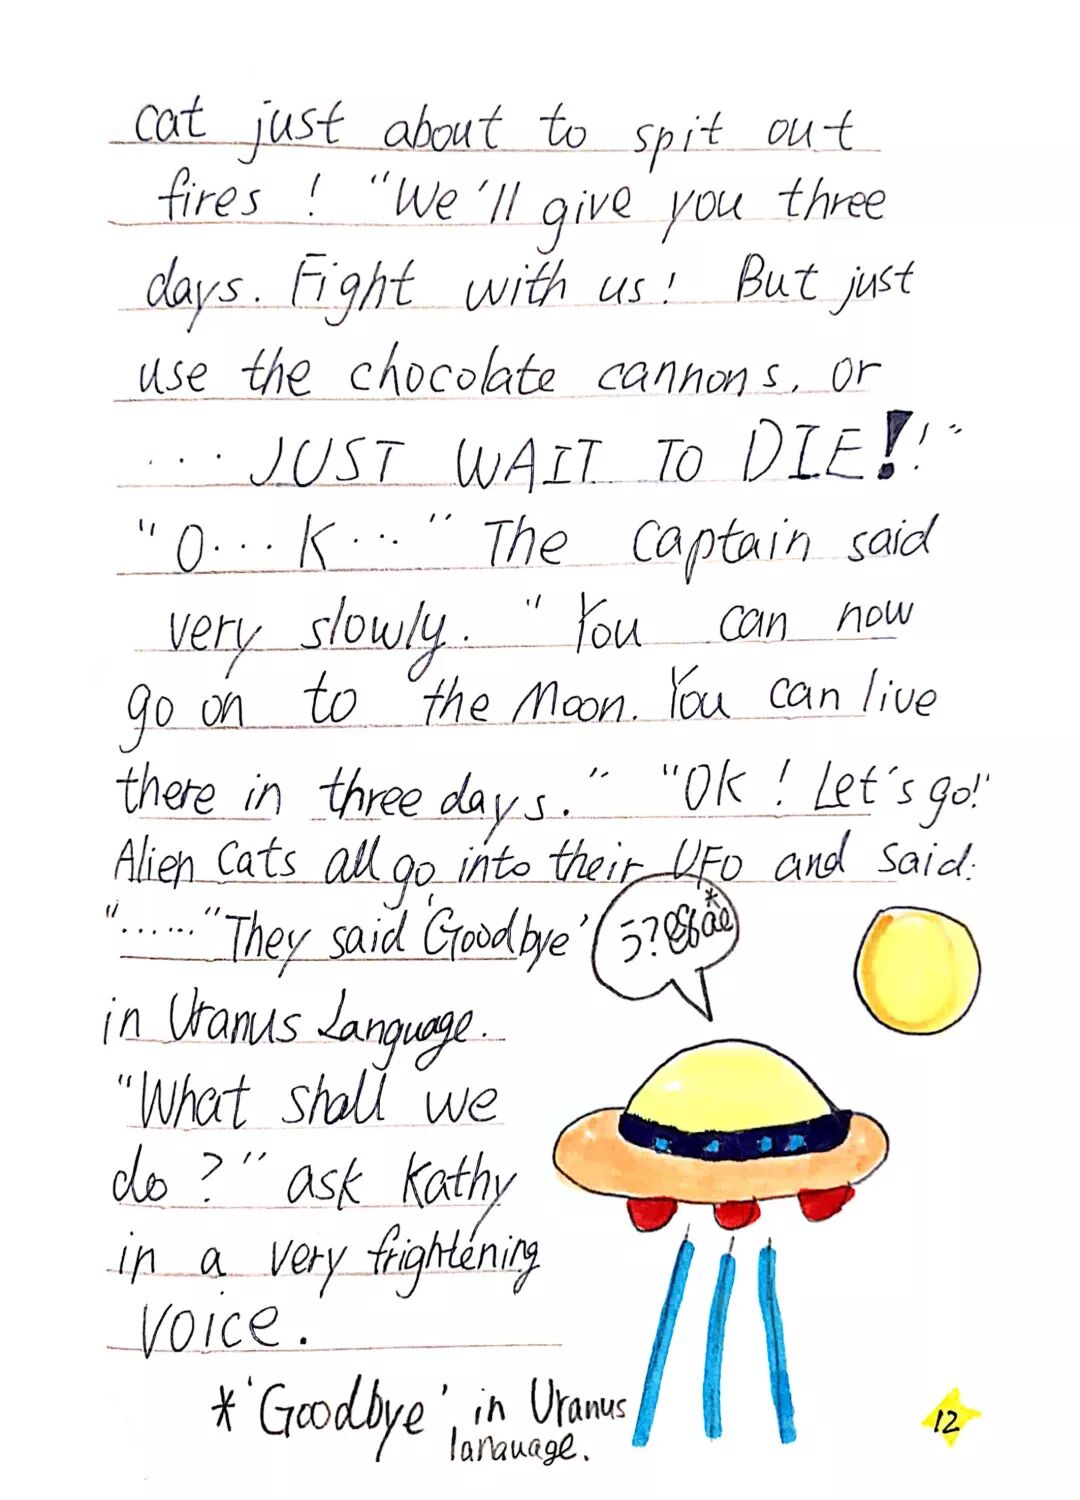 cat just about to spit out
fires ! "We'll give you three
days. Fight with us! But just
use the chocolate cannons, or
... JUST WAIT TO DIE!!"
"O... K..." The captain said
very slowly. "You can now
go on to the Moon. You can live
there in three days." "OK ! Let's go!"
Alien Cats all go into their UFO and said:
"......" They said 'Goodbye'
in Uranus Language.
"What shall we
do ?" ask Kathy
in a very frightening
voice.
*'Goodbye' in Uranus
lanauage.
12